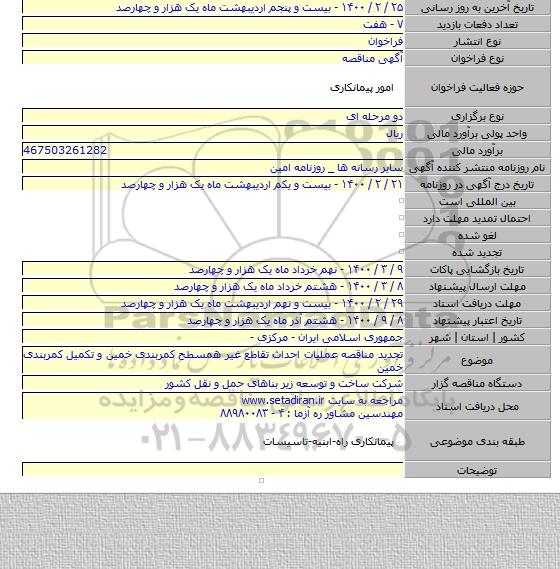 تاریخ آخرین به روز رسانی ۲۵ / ۲ / ۱۴۰۰ - بیست و پنجم اردیبهشت ماه یک هزار و چهارصد
تعداد دفعات بازدید ۷ - هفت
نوع انتشار فراخوان
نوع فراخوان آگهی مناقصه
حوزه فعالیت فراخوان امور پیمانکاری
نوع برگزاری دو مرحله ای
واحد پولی برآورد مالی ریال
برآورد مالی 467503261282
نام روزنامه منتشر کننده آگهی سایر رسانه ها _ روزنامه امین
تاریخ درج آگهی در روزنامه ۲۱ / ۲ / ۱۴۰۰ - بیست و یکم اردیبهشت ماه یک هزار و چهارصد
بین المللی است
احتمال تمدید مهلت دارد
لغو شده
تجدید شده
تاریخ بازگشایی پاکات ۹ / ۳ / ۱۴۰۰ - نهم خرداد ماه یک هزار و چهارصد
مهلت ارسال پیشنهاد ۸ / ۳ / ۱۴۰۰ - هشتم خرداد ماه یک هزار و چهارصد
مهلت دریافت اسناد ۲۹ / ۲ / ۱۴۰۰ - بیست و نهم اردیبهشت ماه یک هزار و چهارصد
تاریخ اعتبار پیشنهاد ۸ / ۹ / ۱۴۰۰ - هشتم آذر ماه یک هزار و چهارصد
کشور | استان | شهر جمهوری اسلامی ایران - مرکزی -
موضوع تجدید مناقصه عملیات احداث تقاطع غیر همسطح کمربندی خمین و تکمیل کمربندی
خمین
دستگاه مناقصه گزار شرکت ساخت و توسعه زیر بناهای حمل و نقل کشور
محل دریافت اسناد مراجعه به سایت www.setadiran.ir
مهندسین مشاور ره آزما : ۴ - ۸۸۹۸۰۰۸۳
طبقه بندی موضوعی پیمانکاری راه-ابنیه-تاسیسات
توضیحات
۰۲۱-۸۸۳۴۹۶۷۰-۵